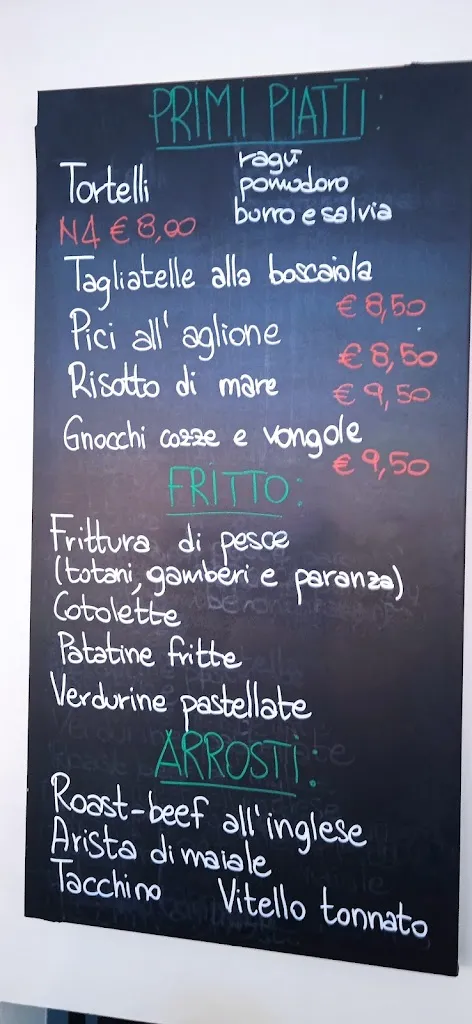 PRIMI PIATTI:
Tortelli
ragù
pomodoro
burro e salvia
N4 € 8,00
Tagliatelle alla boscaiola
€ 8,50
Pici all'aglione
€ 8,50
Risotto di mare
€ 9,50
Gnocchi cozze e vongole
€ 9,50
FRITTO:
Frittura di pesce
(totani, gamberi e paranza)
Cotolette
Patatine fritte
Verdurine pastellate
ARROSTI:
Roast-beef all'inglese
Arista di maiale
Tacchino Vitello tonnato